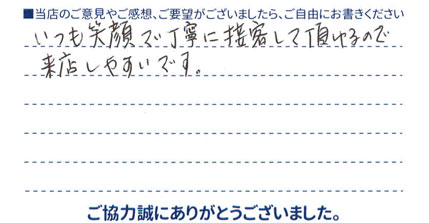 ■当店のご意見やご感想、ご要望がございましたら、ご自由にお書きください
いつも笑顔で丁寧に接客して頂けるので
来店しやすいです。
ご協力誠にありがとうございました。